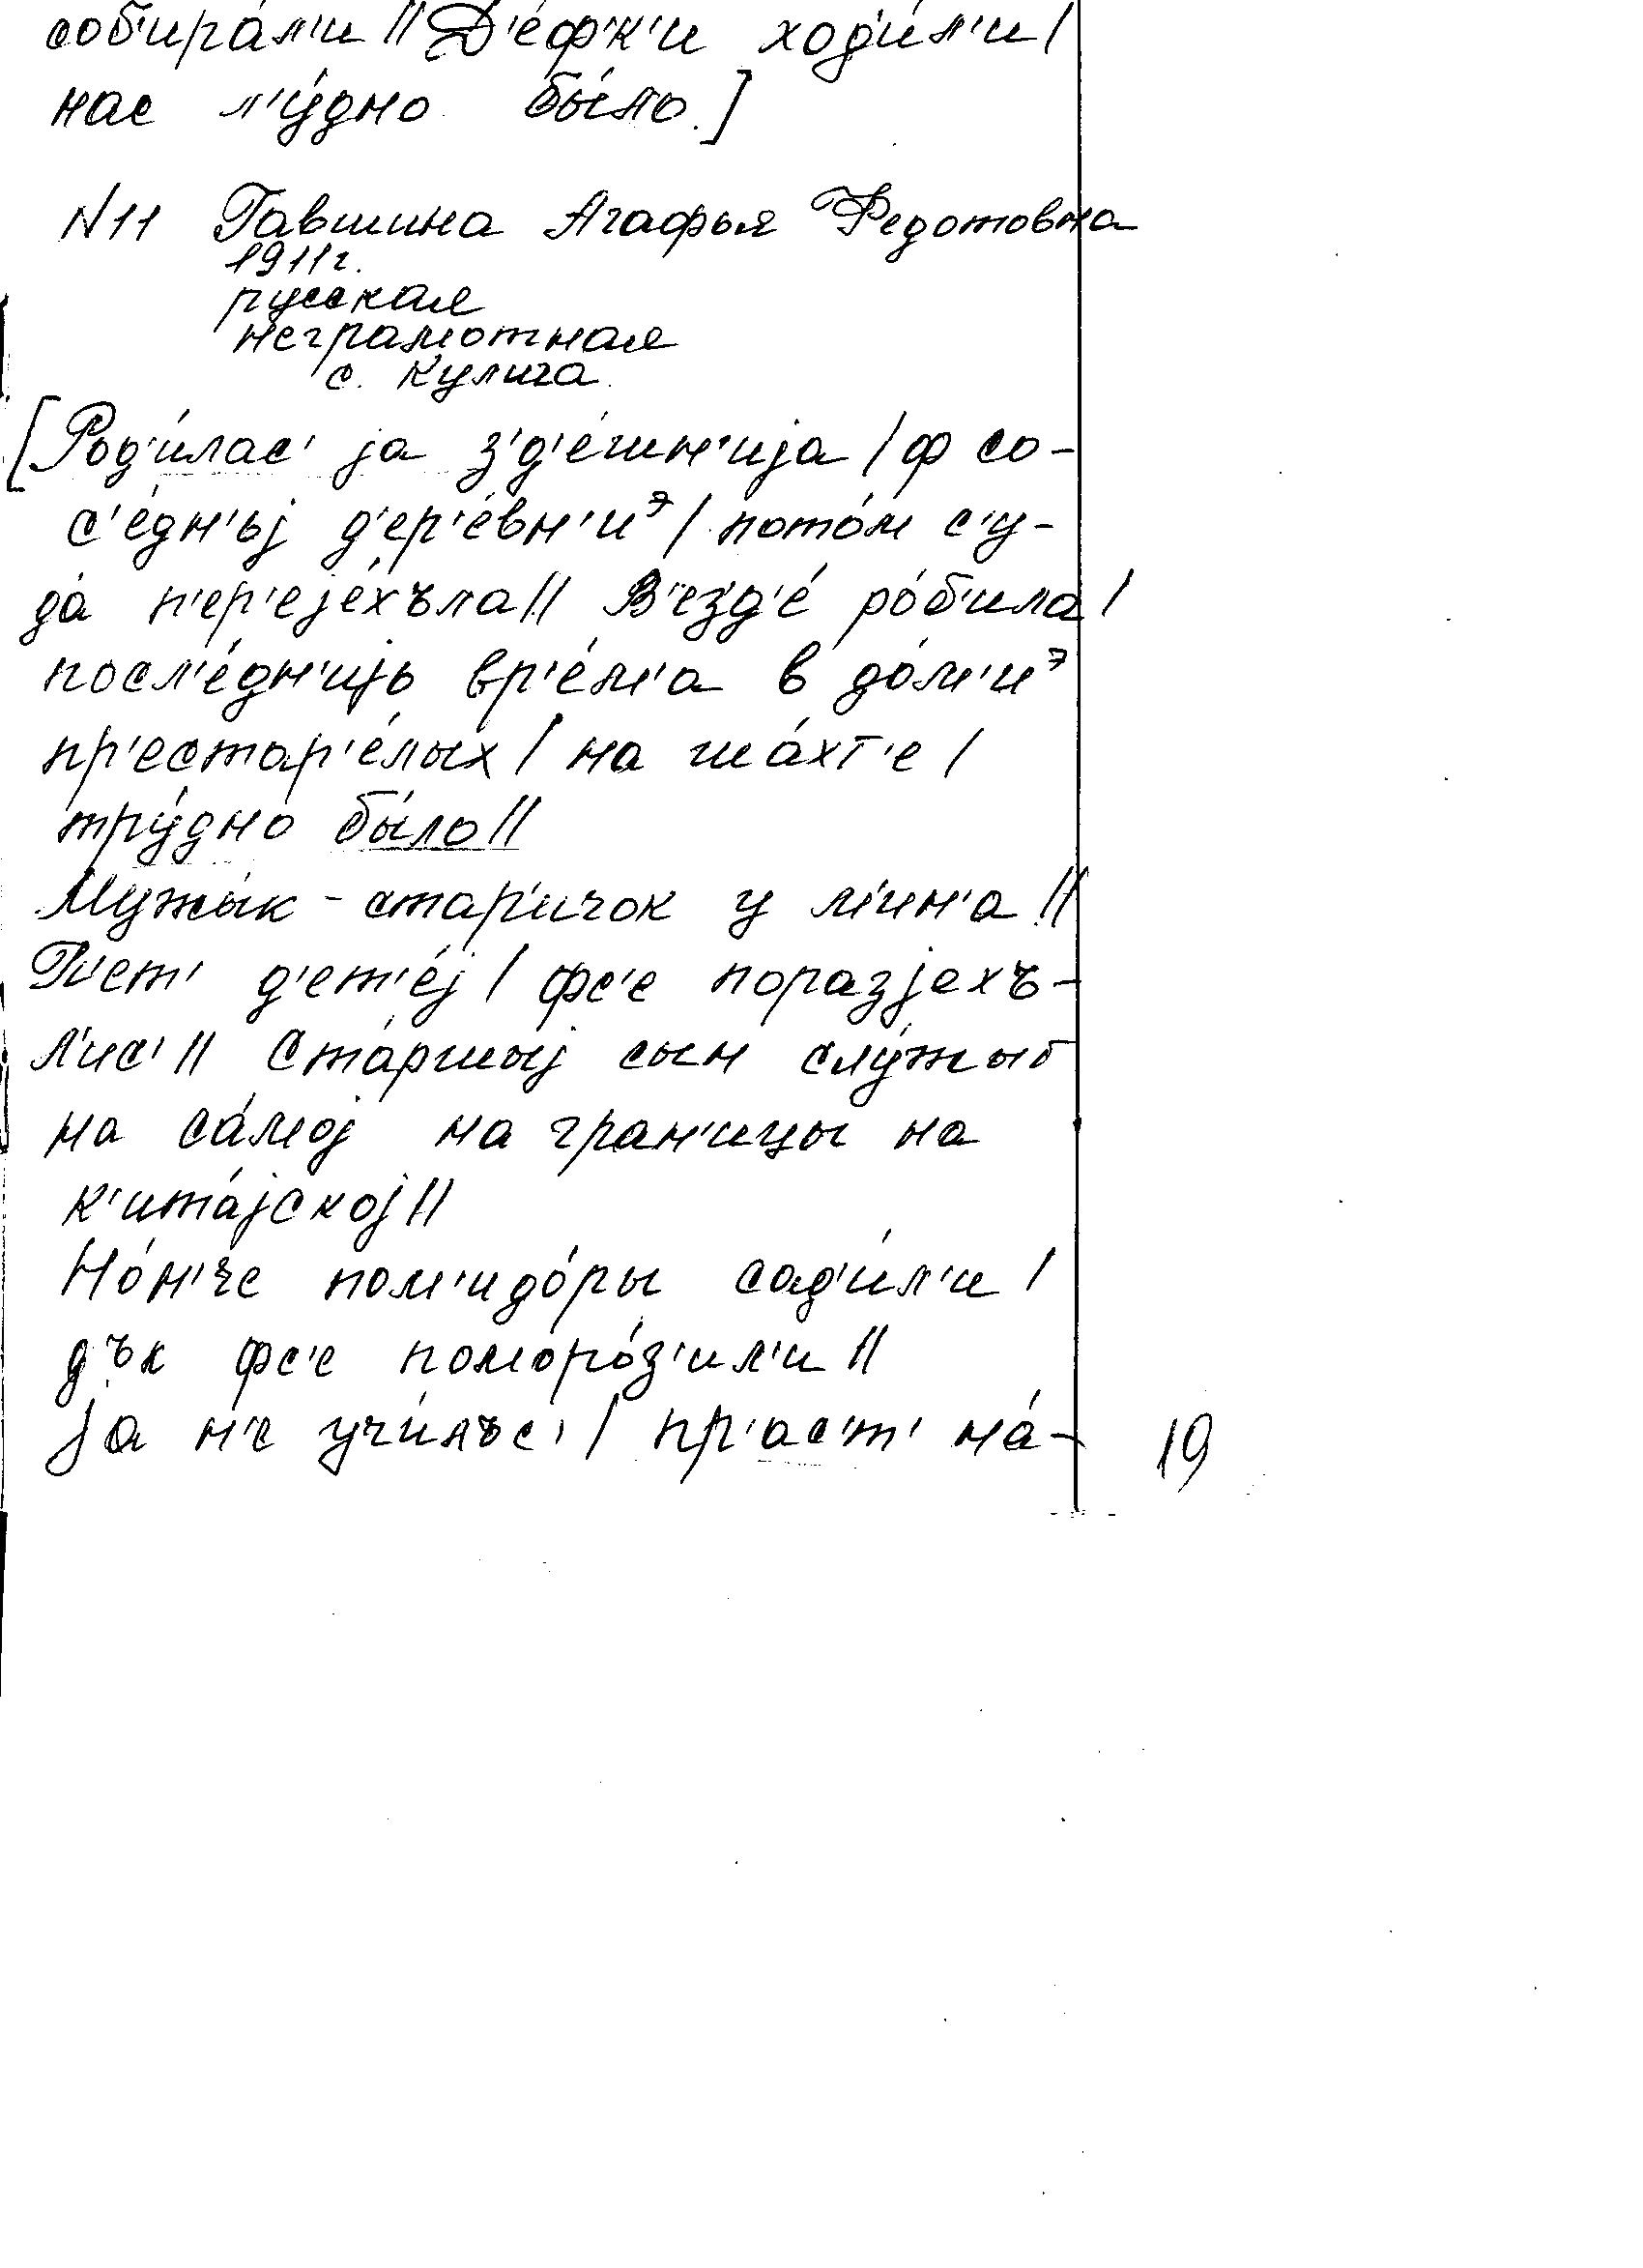 соб'ира́л'и || Д'е́фк'и ход'и́л'и |
нас л'у́дно бы́ло.]
N11 Гавшина Агафья Федотовна
1911г.
русская
неграмотная
с. Кулига.
[Род'и́лас' jа з'д'е́шн'иjа | ф со-
с'е́дн'ьj д'ер'е́вн'иᵌ | пото́м с'у-
да́ п'ер'еjе́хъла || В'езд'е́ ро́б'ила |
посл'е́дн'иjь вр'е́м'а в до́м'иᵌ
пр'естар'е́лых | на ша́хт'е |
тру́дно бы́ло ||
Мужы́к - стар'ичок у м'ин'а ||
П'ет' д'ет'е́j | фс'е поразjехъ-
л'ис' || Ста́ршыj сын слу́жыт
на са́моj на гран'ицы на
к'ита́jскоj ||
Но́н'че пом'идо́ры сад'и́л'и |
дък фс'е поморо́з'ил'и ||
jа н'е учи́лъс' | пр'ас'т' на́-
19